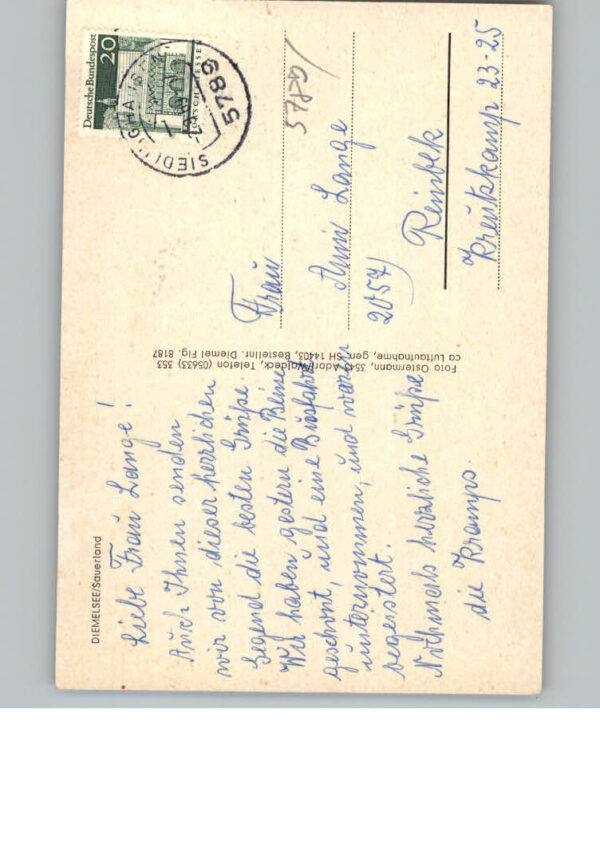 DIEMELSEE/Sauerland
Liebe Frau Lange!
Auch Ihnen senden
wir von dieser herrlichen
Gegend die besten Grüße.
Wir haben gestern die Beine
geschont, und eine Busfahrt
unternommen, und waren
begeistert.
Nochmals herzliche Grüße
die Kramps.
Foto Ostermann, 3543 Adorf/Waldeck, Telefon (05633) 353
ca Luftaufnahme, gen. SH 14403, Bestellnr. Diemel Flg. 8187
Deutsche Bundespost
20
LORSCH HESSEN
5789
SIEDLINGHA
5789/
Frau
Anni Lange
2057)
Reinbek
Kreutzkamp 23-25